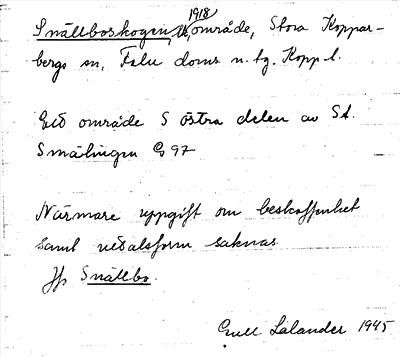 1918
Snällboskogen, område, Stora Koppar-
bergs sn, Falu doms n. tg. Kopp. l.
Ett område S östra delen av St.
Smälingen G 97
Närmare uppgift om beskaffenhet
samt uttalsform saknas
Jfr Snällbo.
Gull Lalander 1945